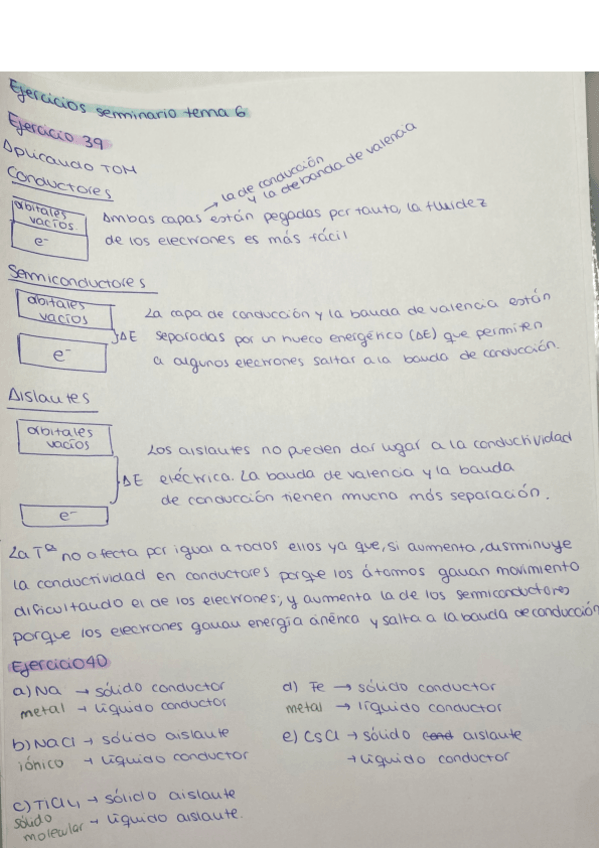 Ejercicios seminario tema 6
Ejercicio 39
Aplicando TOM
Conductores
→ la de conducción
y la de banda de valencia
orbitales
vacíos
e⁻
Ambas capas están pegadas por tanto, la fluidez
de los electrones es más fácil
Semiconductores
orbitales
vacíos
e⁻
ΔE
La capa de conducción y la banda de valencia están
separadas por un hueco energético (ΔE) que permiten
a algunos electrones saltar a la banda de conducción.
Aislantes
orbitales
vacíos
ΔE
e⁻
Los aislantes no pueden dar lugar a la conductividad
eléctrica. La banda de valencia y la banda
de conducción tienen mucha más separación.
La Tª no afecta por igual a todos ellos ya que, si aumenta, disminuye
la conductividad en conductores porque los átomos ganan movimiento
dificultando el de los electrones; y aumenta la de los semiconductores
porque los electrones ganan energía cinética y salta a la banda de conducción
Ejercicio 40
a) Na → sólido conductor
metal → líquido conductor
b) NaCl → sólido aislante
iónico → líquido conductor
c) TiCl₄ → sólido aislante
sólido molecular → líquido aislante.
d) Fe → sólido conductor
metal → líquido conductor
e) CsCl → sólido cond aislante
→ líquido conductor